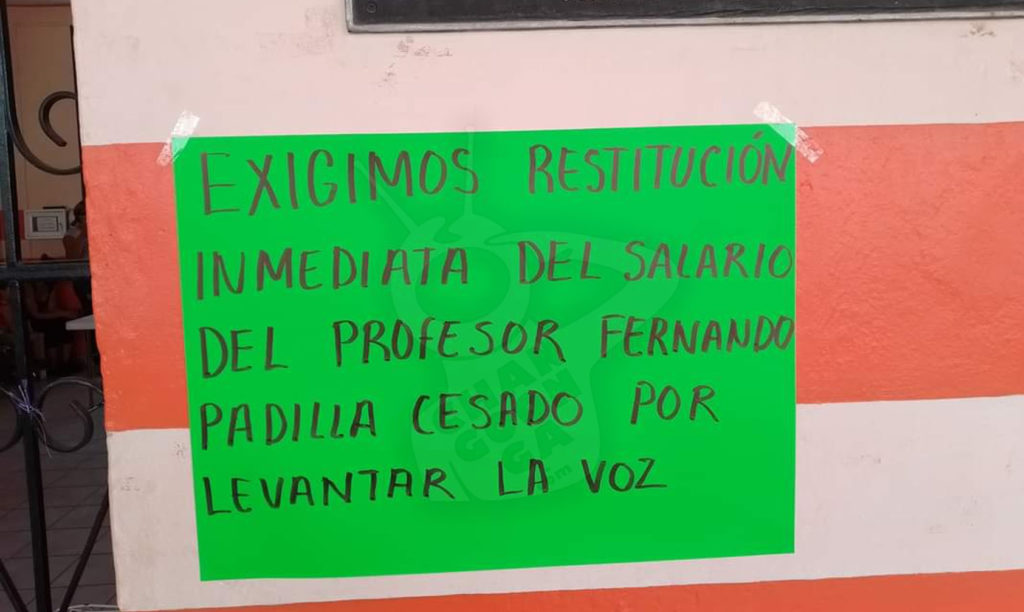 EXIGIMOS RESTITUCIÓN
INMEDIATA DEL SALARIO
DEL PROFESOR FERNANDO
PADILLA CESADO POR
LEVANTAR LA VOZ